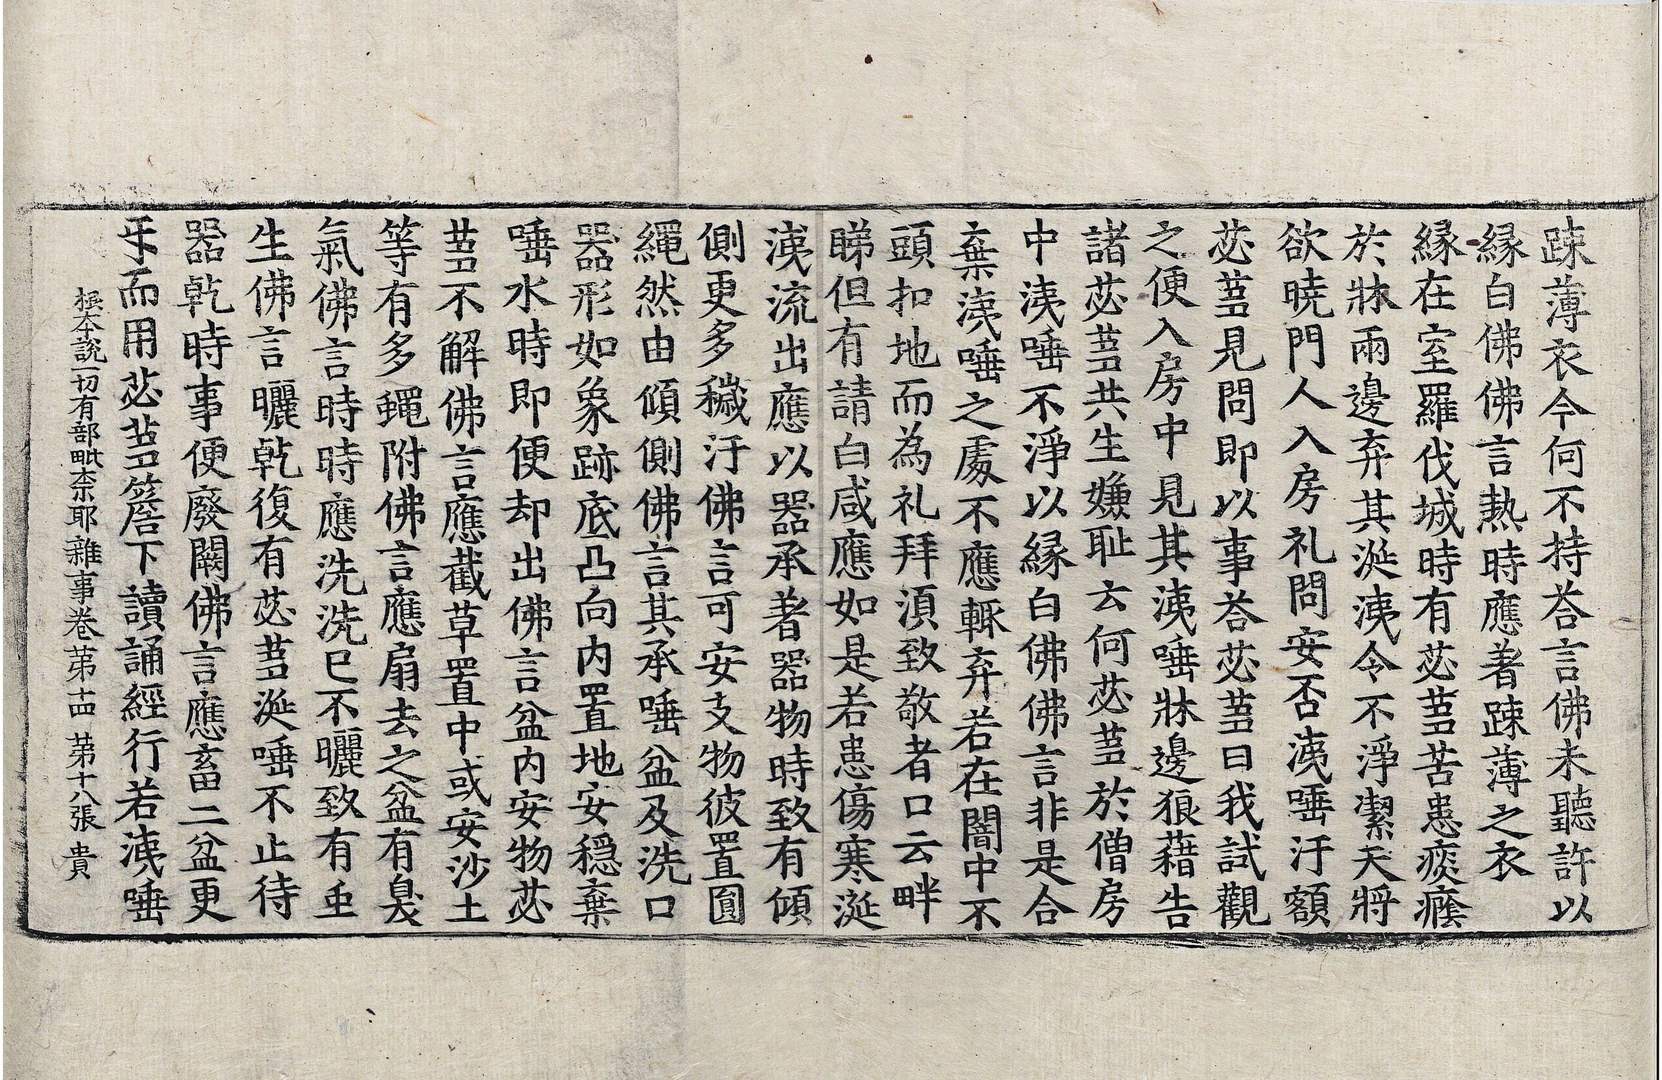 踈薄衣今何不持荅言佛未聽許以
縁白佛佛言熱時應著踈薄之衣
縁在室羅伐城時有苾蒭苦患痰癊
於牀兩邊弃其涎洟令不淨潔天將
欲曉門人入房礼問安否洟唾汙額
苾蒭見問即以事荅苾蒭曰我試觀
之便入房中見其洟唾牀邊狼藉告
諸苾蒭共生嫌恥云何苾蒭於僧房
中洟唾不淨以縁白佛佛言非是合
棄洟唾之處不應輒弃若在闇中不
頭扣地而為礼拜湏致敬者口云畔
睇但有請白咸應如是若患傷寒涎
洟流出應以器承著器物時致有傾
側更多穢汙佛言可安支物彼置圓
繩然由傾側佛言其承唾盆及洗口
器形如象跡底凸向内置地安穩棄
唾水時即便却出佛言盆内安物苾
蒭不解佛言應截草置中或安沙土
等有多蠅附佛言應扇去之盆有臭
氣佛言時時應洗洗已不曬致有虫
生佛言曬乾復有苾蒭涎唾不止待
器乾時事便廢闕佛言應畜二盆更
㸦而用苾蒭簷下讀誦經行若洟唾
根本說一切有部毗柰耶雜事卷苐十四 苐十八張 貴